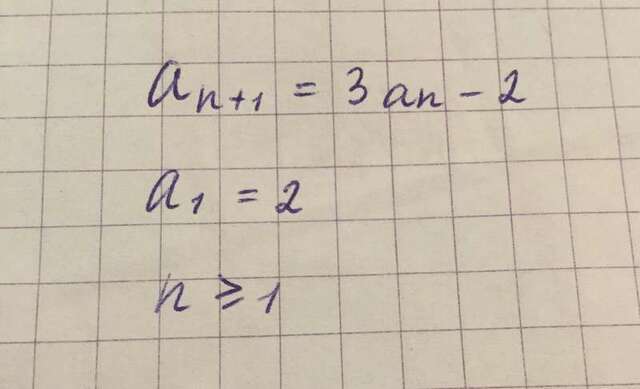 aₙ₊₁ = 3aₙ - 2
a₁ = 2
n ≥ 1